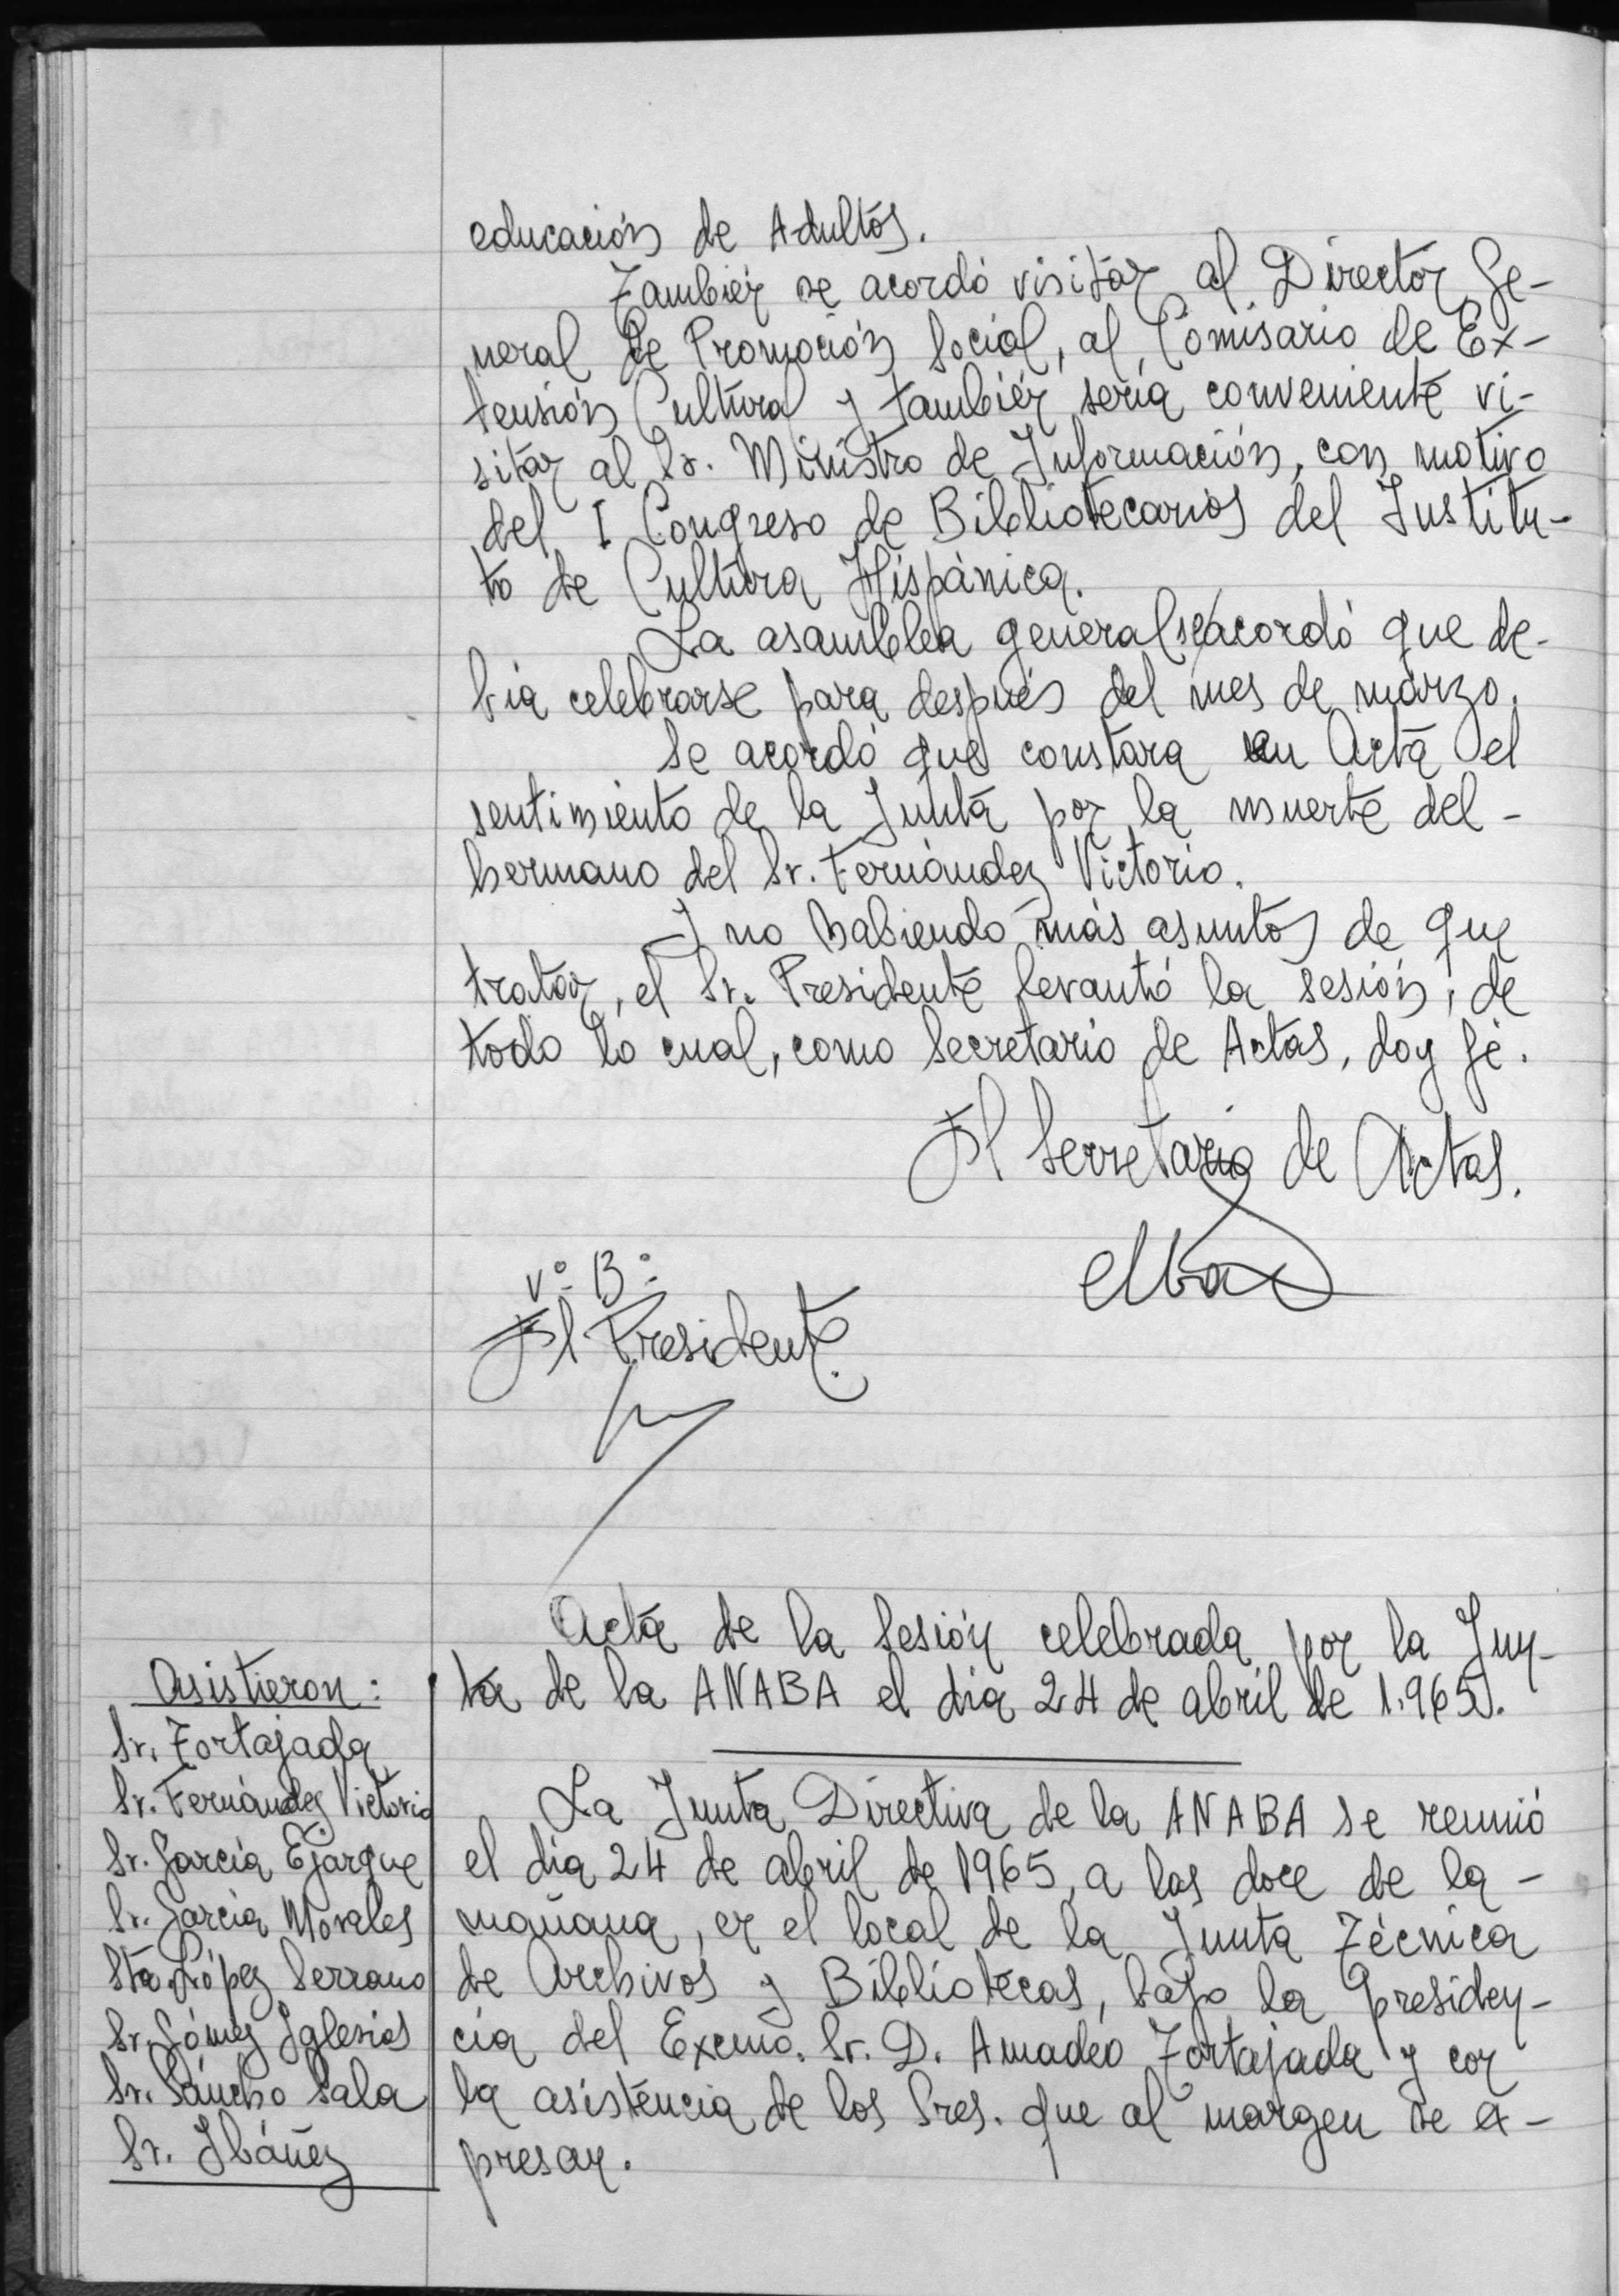 educación de Adultos.
También se acordó visitar al Director Ge-
neral de Promoción Social, al Comisario de Ex-
tensión Cultural y también sería conveniente vi-
sitar al Sr. Ministro de Información, con motivo
del I Congreso de Bibliotecarios del Institu-
to de Cultura Hispánica.
La asamblea general se acordó que de-
bía celebrarse para después del mes de marzo.
Se acordó que constara en Acta el
sentimiento de la Junta por la muerte del -
hermano del Sr. Fernández Victorio.
Y no habiendo más asuntos de que
tratar, el Sr. Presidente levantó la sesión; de
todo lo cual, como Secretario de Actas, doy fé.
El Secretario de Actas.
Vº Bº
El Presidente.
Acta de la Sesión celebrada por la Jun-
ta de la ANABA el día 24 de abril de 1.965.
Asistieron:
Sr. Tortajada
Sr. Fernández Victorio
Sr. García Ejarque
Sr. García Morales
Sta. López Serrano
Sr. Gómez Iglesias
Sr. Sáncho Sala
Sr. Ibáñez
La Junta Directiva de la ANABA se reunió
el día 24 de abril de 1965, a las doce de la -
mañana, en el local de la Junta Técnica
de Archivos y Bibliotecas, bajo la presiden-
cia del Excmo. Sr. D. Amadeo Tortajada y con
la asistencia de los Sres. que al margen se ex-
presan.